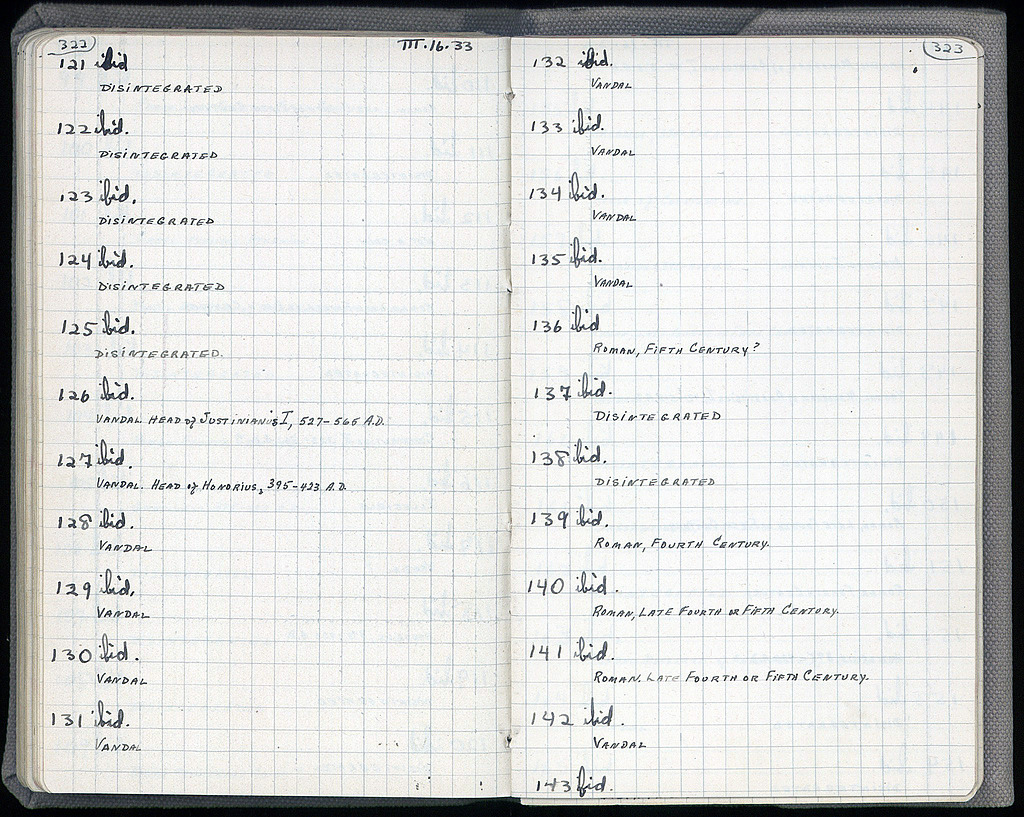 322
III.16.33
121 ibid
DISINTEGRATED
122 ibid.
DISINTEGRATED
123 ibid.
DISINTEGRATED
124 ibid.
DISINTEGRATED
125 ibid.
DISINTEGRATED.
126 ibid.
VANDAL HEAD of JUSTINIANUS I, 527-565 A.D.
127 ibid.
VANDAL. HEAD of HONORIUS, 395-423 A.D.
128 ibid.
VANDAL
129 ibid.
VANDAL
130 ibid.
VANDAL
131 ibid.
VANDAL
323
132 ibid.
VANDAL
133 ibid.
VANDAL
134 ibid.
VANDAL
135 ibid.
VANDAL
136 ibid
ROMAN, FIFTH CENTURY?
137 ibid.
DISINTEGRATED
138 ibid.
DISINTEGRATED
139 ibid.
ROMAN, FOURTH CENTURY.
140 ibid.
ROMAN, LATE FOURTH OR FIFTH CENTURY.
141 ibid.
ROMAN. LATE FOURTH OR FIFTH CENTURY.
142 ibid.
VANDAL
143 ibid.